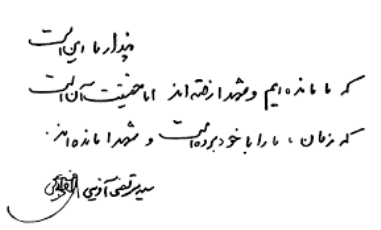 پندار ما این است
که ما مانده‌ایم و شهدا رفته‌اند اما حقیقت آن است
که زمان، ما را با خود برده است و شهدا مانده‌اند.
سید مرتضی آوینی